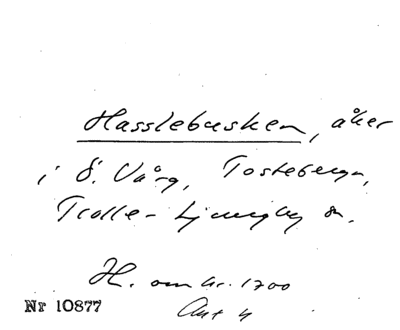 Hasslebusken, åker
i Ö. Vång, Tosteberga,
Trolle-Ljungby sn.
H. om kr. 1700
Ant 4
Nr 10877